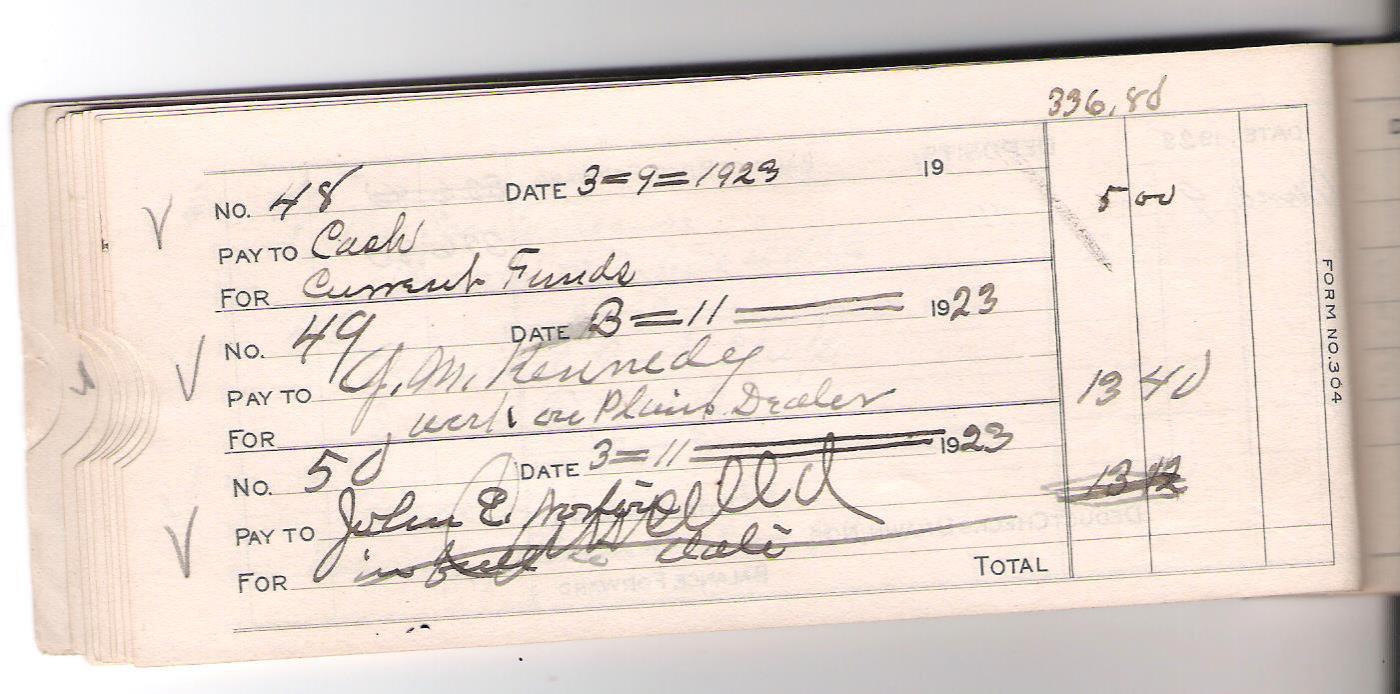 336.80
No. 48 DATE 3=9=1923 19
PAY TO Cash 5 00
FOR Current Funds
No. 49 DATE 3=11 1923
PAY TO J. M. Kennedy
FOR work on Plain Dealer 13 40
No. 50 DATE 3=11 1923
PAY TO John E. 13 12
FOR in full to date
TOTAL
FORM NO. 304